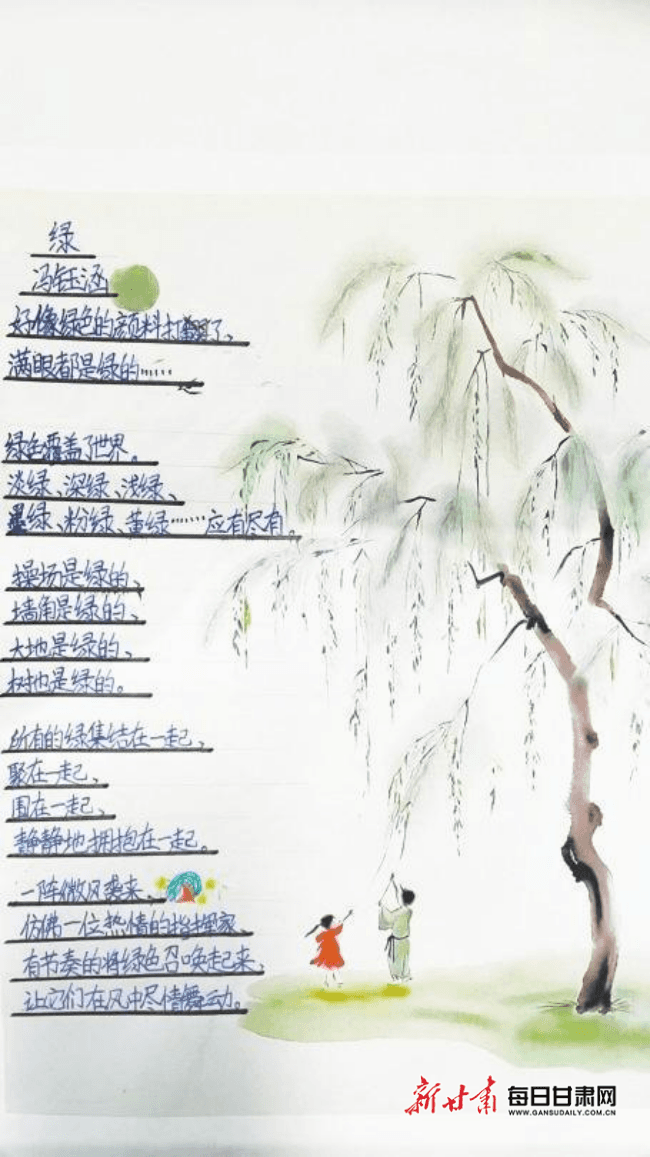 绿
冯钰涵
好像绿色的颜料打翻了、
满眼都是绿的……
绿色覆盖了世界。
淡绿、深绿、浅绿、
墨绿、粉绿、黄绿……应有尽有。
操场是绿的、
墙角是绿的、
大地是绿的、
树也是绿的。
所有的绿集结在一起、
聚在一起、
围在一起、
静静地拥抱在一起。
一阵微风袭来、
仿佛一位热情的指挥家、
有节奏的将绿色召唤起来、
让它们在风中尽情舞动。
新甘肃 每日甘肃网
WWW.GANSUDAILY.COM.CN